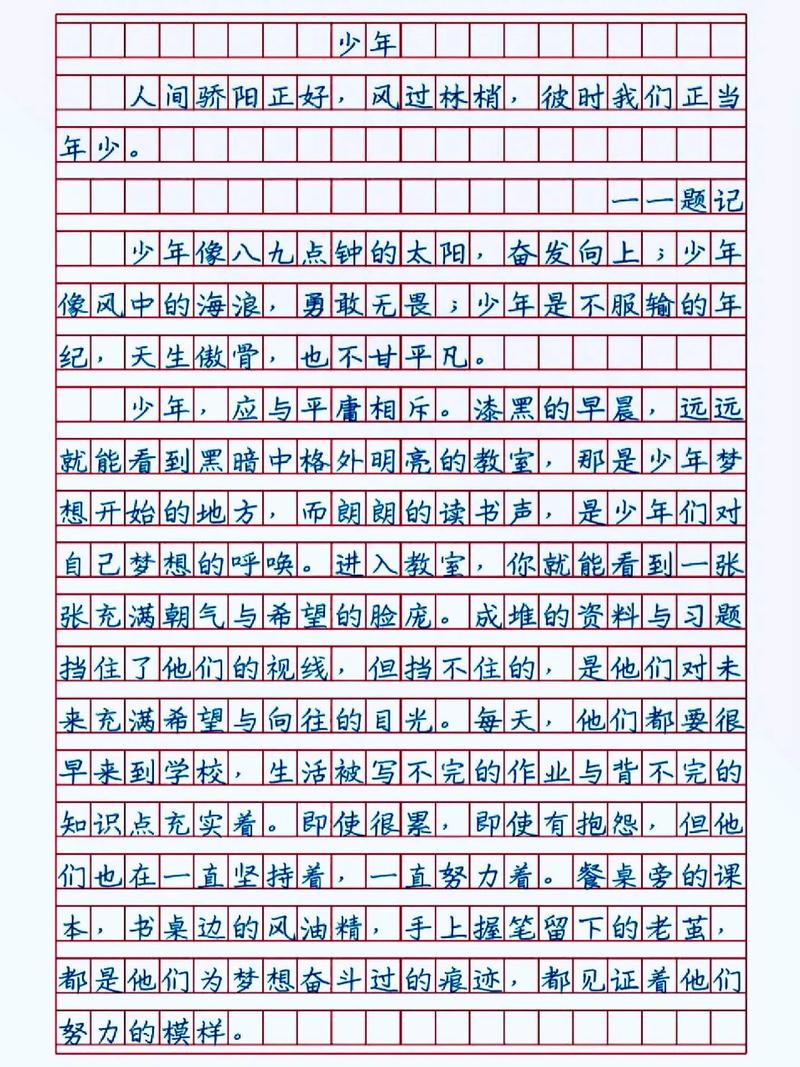 少年
人间骄阳正好，风过林梢，彼时我们正当
年少。
——题记
少年像八九点钟的太阳，奋发向上；少年
像风中的海浪，勇敢无畏；少年是不服输的年
纪，天生傲骨，也不甘平凡。
少年，应与平庸相斥。漆黑的早晨，远远
就能看到黑暗中格外明亮的教室，那是少年梦
想开始的地方，而朗朗的读书声，是少年们对
自己梦想的呼唤。进入教室，你就能看到一张
张充满朝气与希望的脸庞。成堆的资料与习题
挡住了他们的视线，但挡不住的，是他们对未
来充满希望与向往的目光。每天，他们都要很
早来到学校，生活被写不完的作业与背不完的
知识点充实着。即使很累，即使有抱怨，但他
们也在一直坚持着，一直努力着。餐桌旁的课
本，书桌边的风油精，手上握笔留下的老茧，
都是他们为梦想奋斗过的痕迹，都见证着他们
努力的模样。